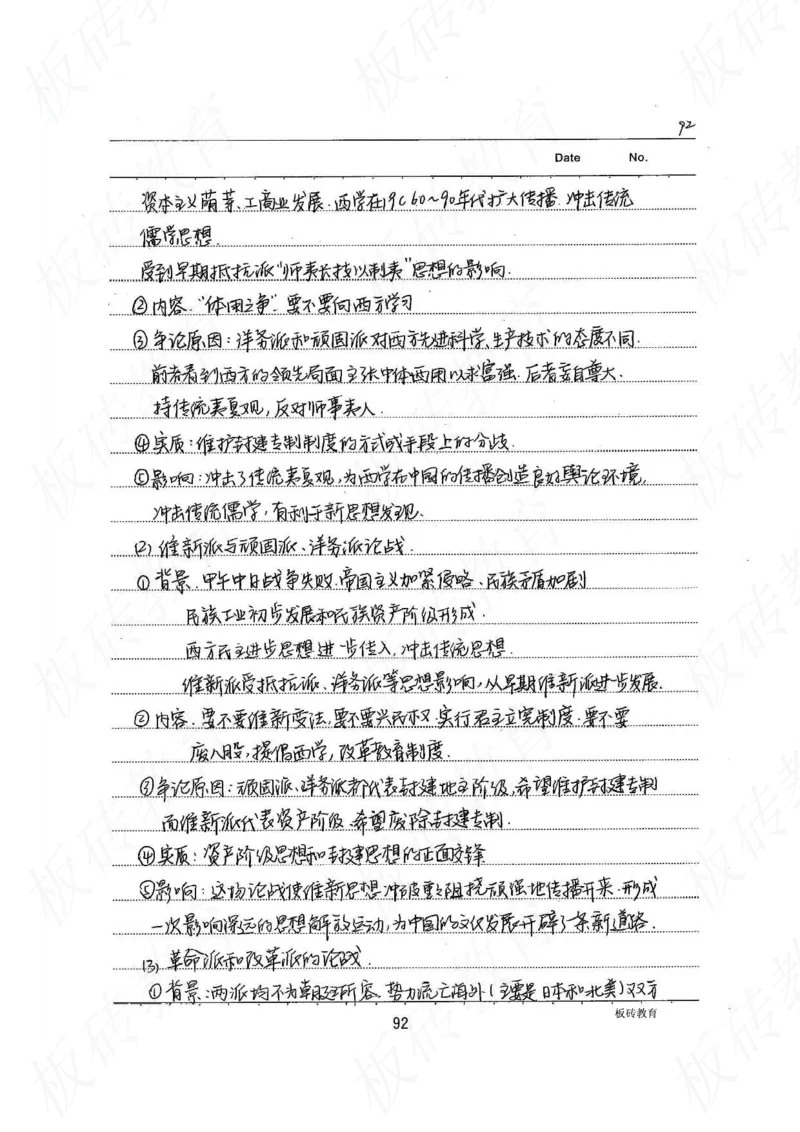 92
Date No.
资本主义萌芽、工商业发展.西学在19C 60~90年代扩大传播.冲击传统
儒学思想.
受到早期抵抗派“师夷长技以制夷”思想的影响.
②内容.“体用之争”.要不要向西方学习
③争论原因:洋务派和顽固派对西方先进科学、生产技术的态度不同.
前者看到西方的领先局面主张中体西用以求富强.后者妄自尊大.
持传统夷夏观,反对师事夷人.
④实质:维护封建专制制度的方式或手段上的分歧.
⑤影响:冲击了传统夷夏观,为西学在中国的传播创造良好舆论环境,
冲击传统儒学,有利于新思想发现.
(2)维新派与顽固派、洋务派论战.
①背景.甲午中日战争失败.帝国主义加紧侵略、民族矛盾加剧
民族工业初步发展和民族资产阶级形成.
西方民主进步思想进一步传入,冲击传统思想.
维新派受抵抗派、洋务派等思想影响,从早期维新派进步发展.
②内容.要不要维新变法,要不要兴民权.实行君主立宪制度.要不要
废八股,提倡西学,改革教育制度.
③争论原因:顽固派、洋务派都代表封建地主阶级,希望维护封建专制
而维新派代表资产阶级.希望废除封建专制.
④实质:资产阶级思想和封建思想的正面交锋
⑤影响:这场论战使维新思想冲破重重阻挠顽强地传播开来.形成
一次影响深远的思想解放运动,为中国的文化发展开辟了一条新道路.
(3)革命派和改革派的论战.
①背景:两派均不为朝廷所容.势力流亡海外(主要是日本和北美)双方
92
板砖教育